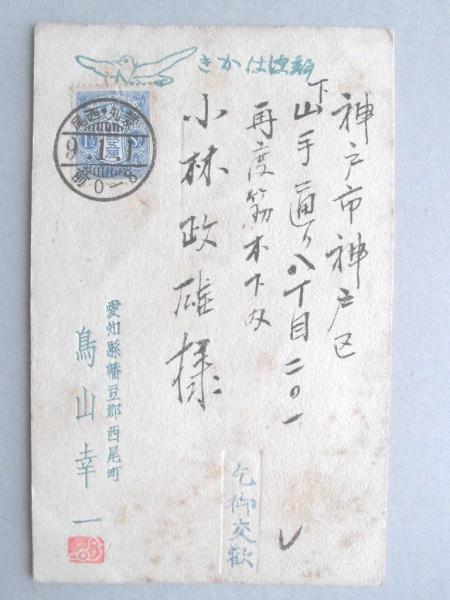 きかは便郵
神戸市神戸区
下山手通り八丁目二〇一
再度筋木下内
小林政雄様
愛知縣幡豆郡西尾町
鳥山幸一
乞御交歓
愛知・西尾
9.1.1
前0-8